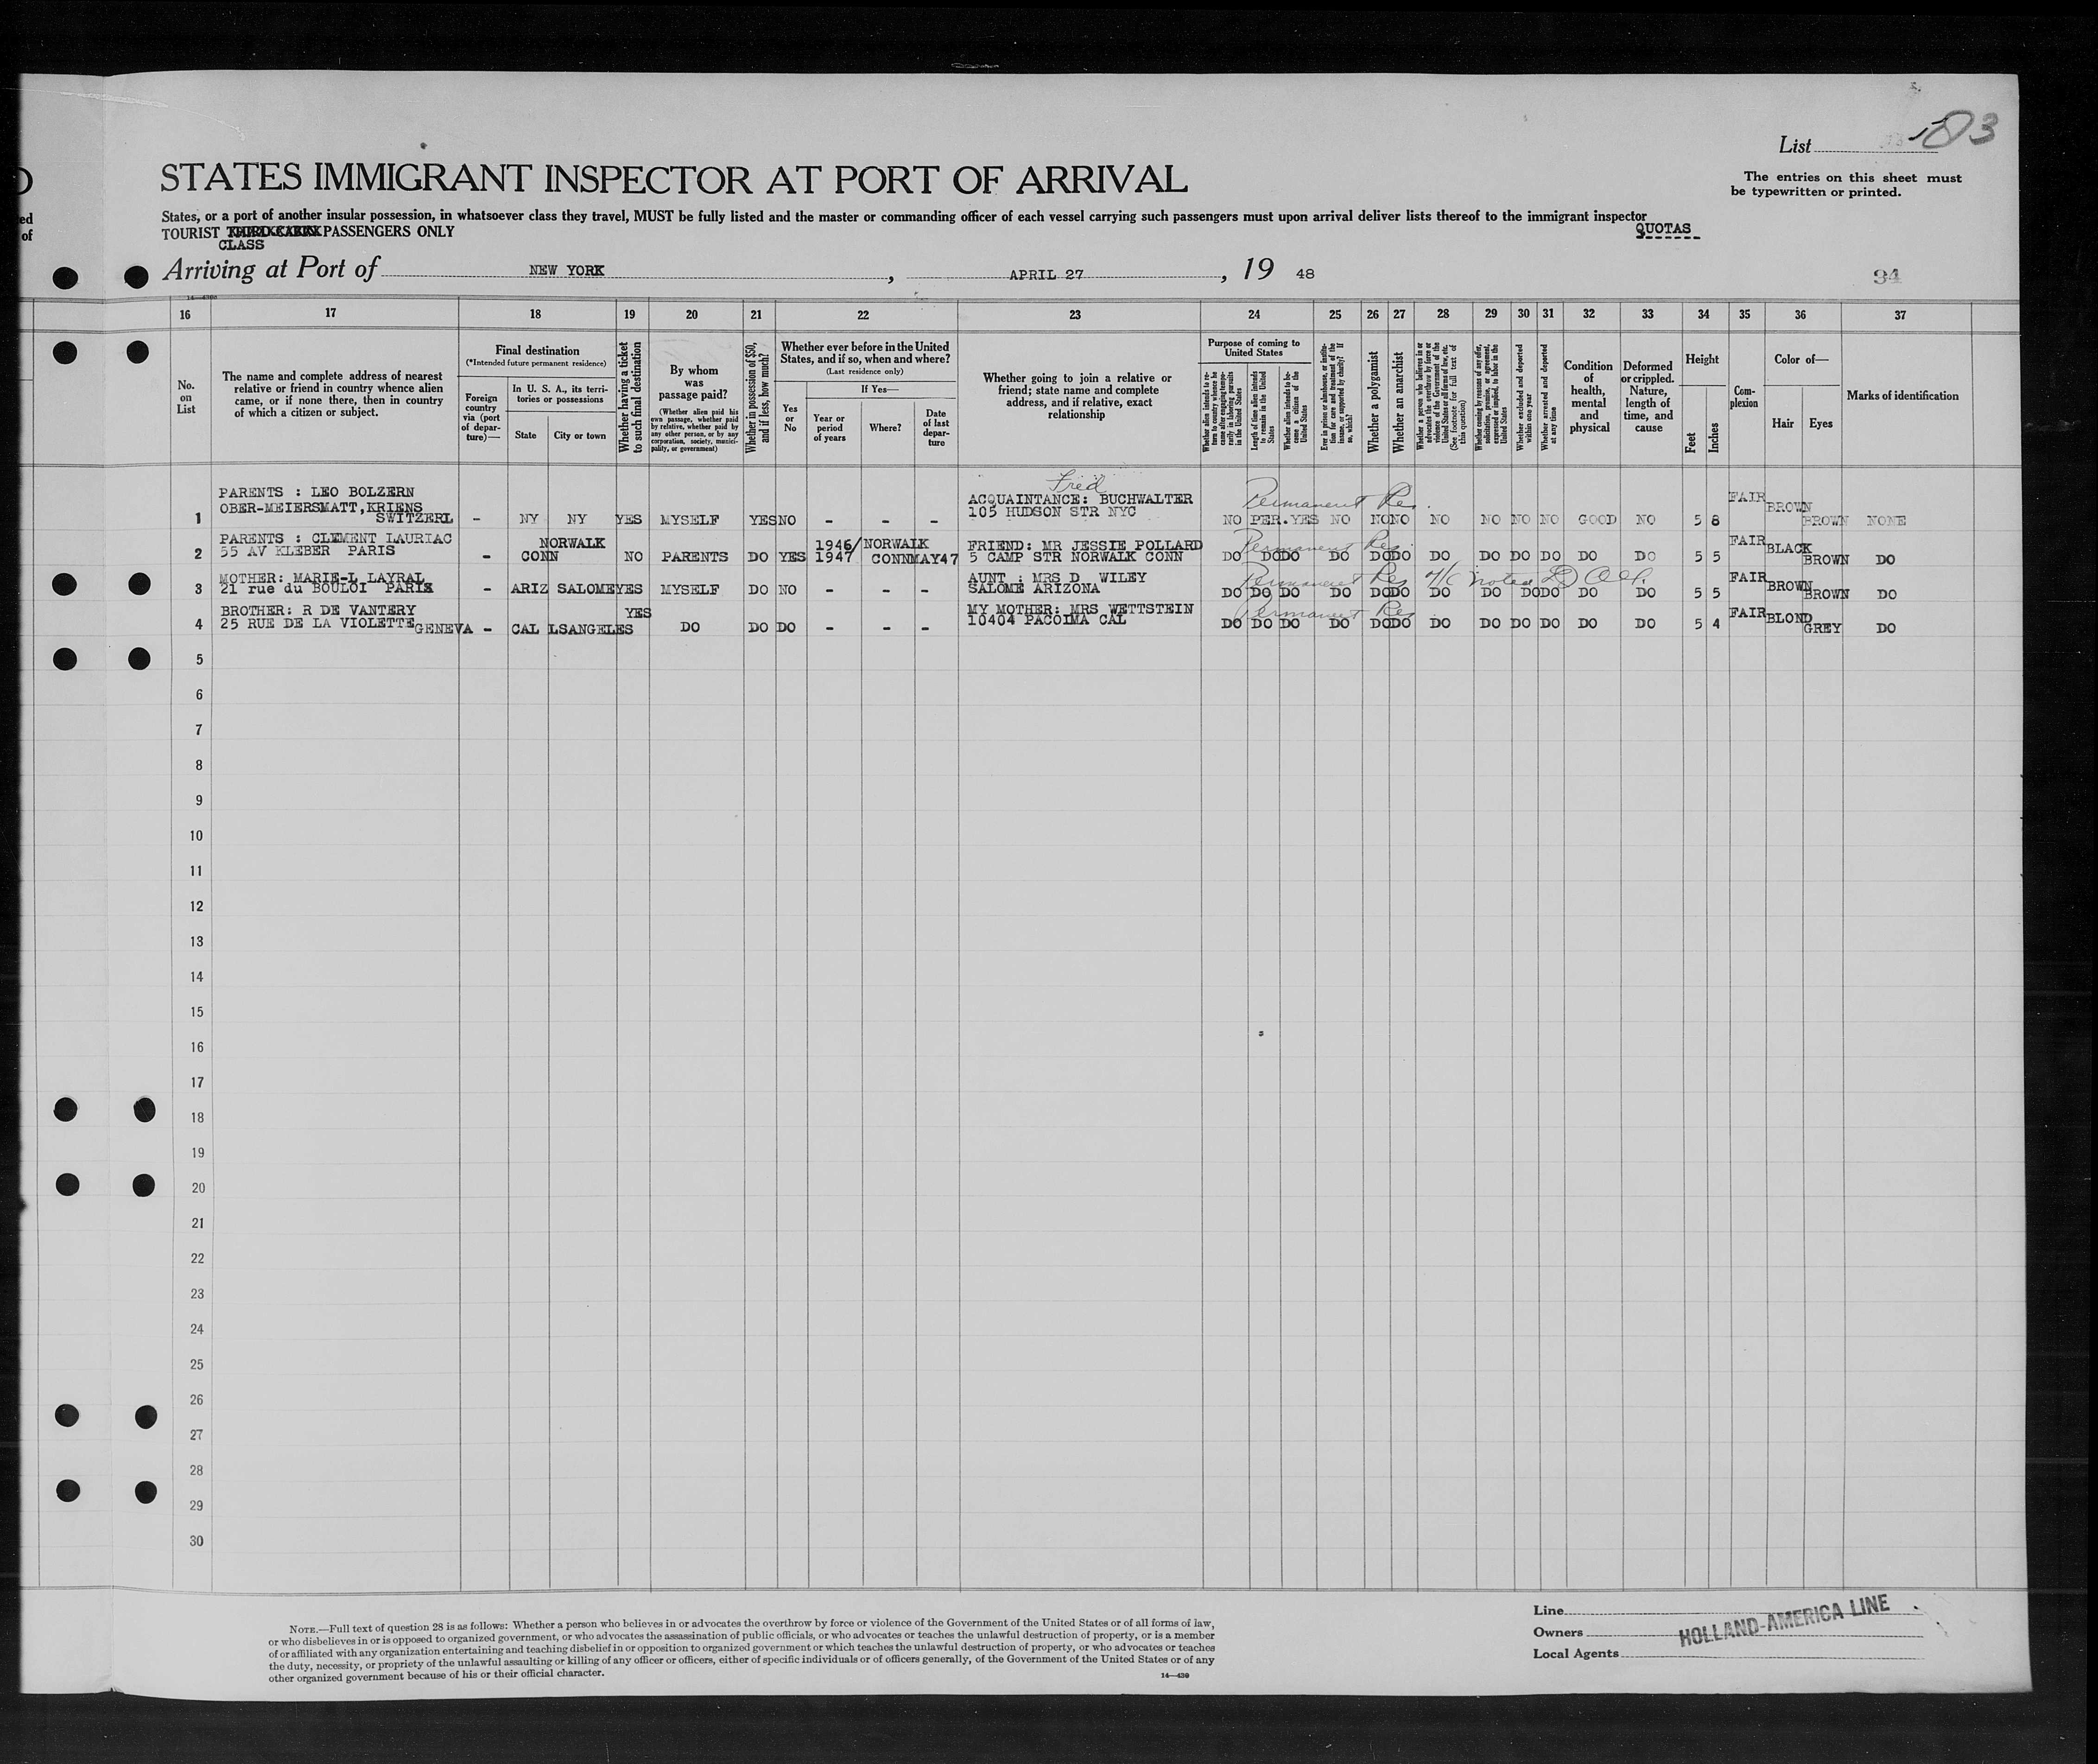 List 103
The entries on this sheet must
be typewritten or printed.
STATES IMMIGRANT INSPECTOR AT PORT OF ARRIVAL
States, or a port of another insular possession, in whatsoever class they travel, MUST be fully listed and the master or commanding officer of each vessel carrying such passengers must upon arrival deliver lists thereof to the immigrant inspector
TOURIST PASSENGERS ONLY
CLASS
QUOTAS
Arriving at Port of NEW YORK, APRIL 27, 19 48
34
16 17 18 19 20 21 22 23 24 25 26 27 28 29 30 31 32 33 34 35 36 37
No. on List
The name and complete address of nearest relative or friend in country whence alien came, or if none there, then in country of which a citizen or subject.
Final destination
(*Intended future permanent residence)
Foreign country via (port of departure)—
In U. S. A., its territories or possessions
State
City or town
Whether having a ticket to such final destination
By whom was passage paid?
(Whether alien paid his own passage, whether paid by relative, whether paid by any other person, or by any corporation, society, municipality, or government)
Whether in possession of $50, and if less, how much?
Whether ever before in the United States, and if so, when and where?
(Last residence only)
Yes or No
If Yes—
Year or period of years
Where?
Date of last departure
Whether going to join a relative or friend; state name and complete address, and if relative, exact relationship
Purpose of coming to United States
Whether alien intends to return to country whence he came after engaging temporarily in laboring pursuits in the United States
Length of time alien intends to remain in the United States
Whether alien intends to become a citizen of the United States
Ever in prison or almshouse, or institution for care and treatment of the insane, or supported by charity? If so, which?
Whether a polygamist
Whether an anarchist
Whether a person who believes in or advocates the overthrow by force or violence of the Government of the United States or all forms of law, etc. (See footnote for full text of this question)
Whether coming by reasons of any offer, solicitation, promise, or agreement, expressed or implied, to labor in the United States
Whether excluded and deported within one year
Whether arrested and deported at any time
Condition of health, mental and physical
Deformed or crippled. Nature, length of time, and cause
Height
Feet
Inches
Complexion
Color of—
Hair
Eyes
Marks of identification
Fred
1 PARENTS : LEO BOLZERN OBER-MEIERSMATT,KRIENS SWITZERL - NY NY YES MYSELF YES NO - - - ACQUAINTANCE: BUCHWALTER 105 HUDSON STR NYC Permanent Re. NO PER. YES NO NO NO NO NO NO NO GOOD NO 5 8 FAIR BROWN BROWN NONE
2 PARENTS : CLEMENT LAURIAC 55 AV KLEBER PARIS - CONN NORWALK NO PARENTS DO YES 1946/1947 NORWALK CONN MAY47 FRIEND: MR JESSIE POLLARD 5 CAMP STR NORWALK CONN Permanent Res DO DO DO DO DO DO DO DO DO DO DO DO 5 5 FAIR BLACK BROWN DO
3 MOTHER: MARIE-L LAYRAL 21 rue du BOULOI PARIS - ARIZ SALOME YES MYSELF DO NO - - - AUNT : MRS D WILEY SALOME ARIZONA Permanent Res noted DO DO DO DO DO DO DO DO DO DO DO DO 5 5 FAIR BROWN BROWN DO
4 BROTHER: R DE VANTERY 25 RUE DE LA VIOLETTE GENEVA - CAL LSANGELES YES DO DO DO - - - MY MOTHER: MRS WETTSTEIN 10404 PACOIMA CAL Permanent Res DO DO DO DO DO DO DO DO DO DO DO DO 5 4 FAIR BLOND GREY DO
5
6
7
8
9
10
11
12
13
14
15
16
17
18
19
20
21
22
23
24
25
26
27
28
29
30
NOTE.—Full text of question 28 is as follows: Whether a person who believes in or advocates the overthrow by force or violence of the Government of the United States or of all forms of law,
or who disbelieves in or is opposed to organized government, or who advocates the assassination of public officials, or who advocates or teaches the unlawful destruction of property, or is a member
of or affiliated with any organization entertaining and teaching disbelief in or opposition to organized government or which teaches the unlawful destruction of property, or who advocates or teaches
the duty, necessity, or propriety of the unlawful assaulting or killing of any officer or officers, either of specific individuals or of officers generally, of the Government of the United States or of any
other organized government because of his or their official character.
14—430
Line
Owners
Local Agents
HOLLAND-AMERICA LINE